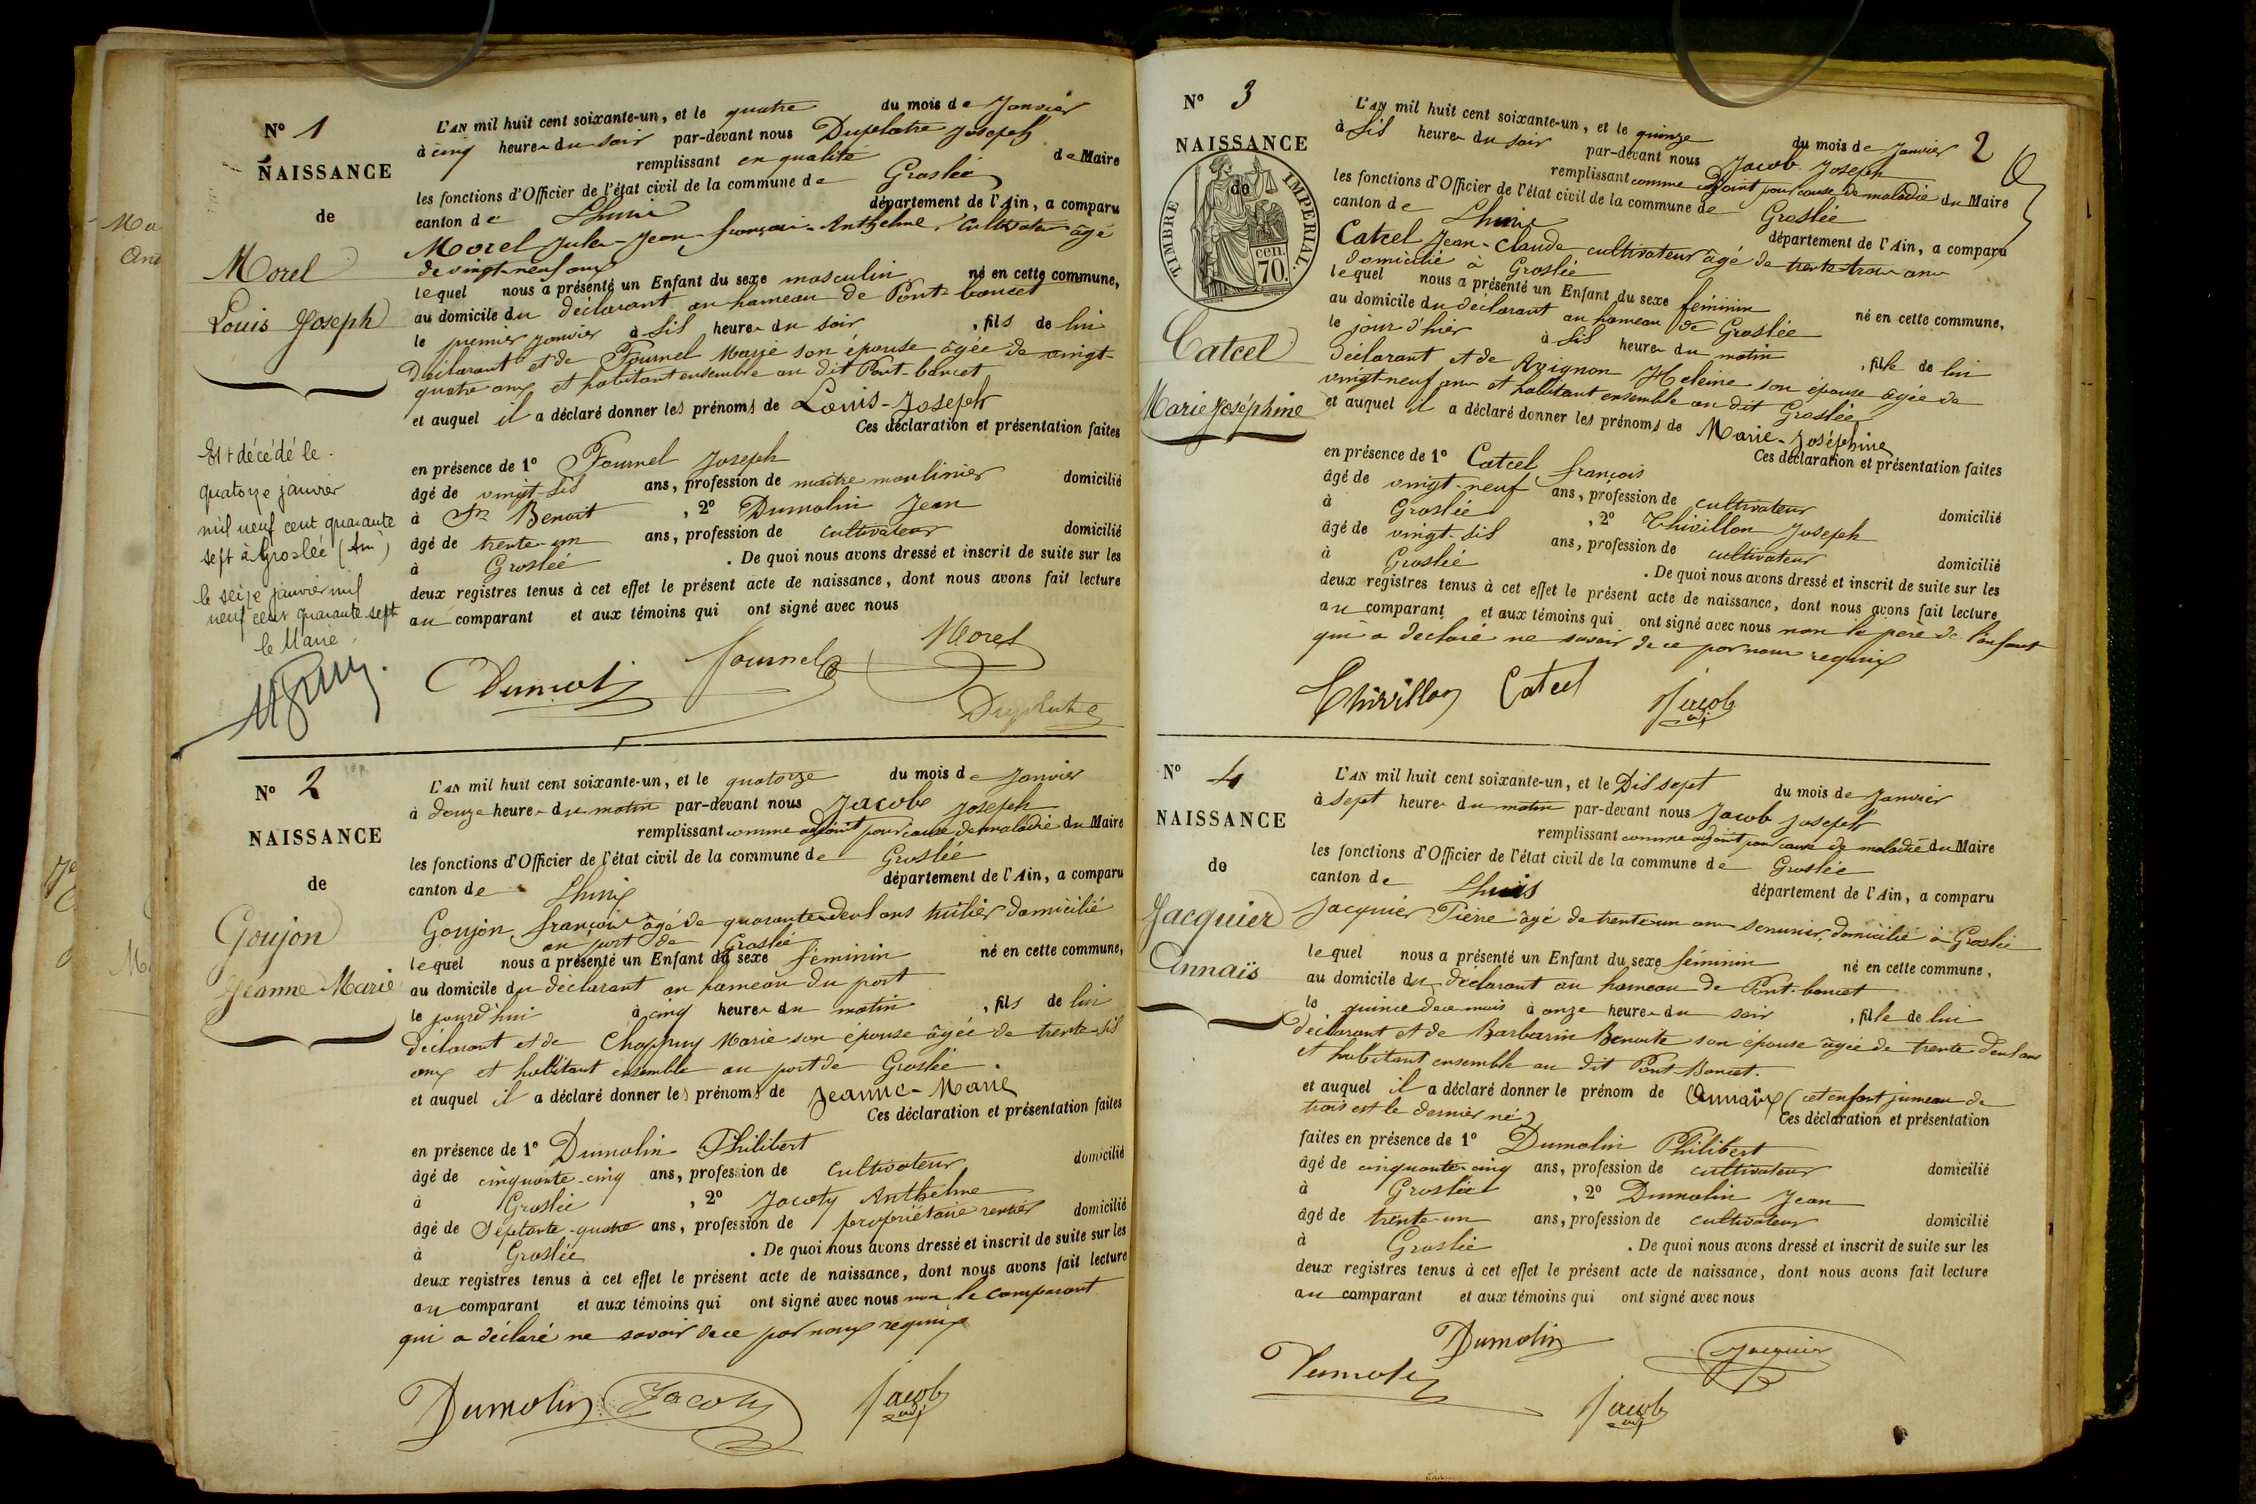 N° 1
NAISSANCE
de
Morel
Louis Joseph
Est décédé le
quatorze janvier
mil neuf cent quarante
sept à Groslée (Ain)
le seize janvier mil
neuf cent quarante-sept
le Maire
L'AN mil huit cent soixante-un, et le quatre du mois de Janvier
à cinq heures du soir par-devant nous Duplatre Joseph
remplissant en qualité de Maire
les fonctions d'Officier de l'état civil de la commune de Groslée
canton de Lhuis département de l'Ain, a comparu
Morel Jules-Jean-françois-Anthelme, Cultivateur âgé
de vingt-neuf ans
lequel nous a présenté un Enfant du sexe masculin né en cette commune,
au domicile du déclarant au hameau de Pont-bancet
le premier janvier à Sis heures du soir , fils de lui
Déclarant et de Fournel Marie son épouse âgée de vingt-
quatre ans et habitant ensemble au dit Pont-bancet
et auquel il a déclaré donner les prénoms de Louis-Joseph
Ces déclaration et présentation faites
en présence de 1° Fournel Joseph
âgé de vingt-sis ans, profession de maître moulinier domicilié
à St Benoit , 2° Dumolin Jean
âgé de trente-un ans, profession de cultivateur domicilié
à Groslée . De quoi nous avons dressé et inscrit de suite sur les
deux registres tenus à cet effet le présent acte de naissance, dont nous avons fait lecture
au comparant et aux témoins qui ont signé avec nous
Dumolin Fournel Morel
Duplatre
N° 2
NAISSANCE
de
Goujon
Jeanne Marie
L'AN mil huit cent soixante-un, et le quatorze du mois de Janvier
à douze heures du matin par-devant nous Jacob Joseph
remplissant comme adjoint pour cause de maladie du Maire
les fonctions d'Officier de l'état civil de la commune de Groslée
canton de Lhuis département de l'Ain, a comparu
Goujon françois âgé de quarante-deus ans tuilier domicilié
au port de Groslée
lequel nous a présenté un Enfant du sexe féminin né en cette commune,
au domicile du déclarant au hameau du port
le jourd'hui à cinq heures du matin , fils de lui
déclarant et de Chappuy Marie son épouse âgée de trente-sis
ans et habitant ensemble au port de Groslée
et auquel il a déclaré donner les prénoms de Jeanne-Marie
Ces déclaration et présentation faites
en présence de 1° Dumolin Philibert
âgé de cinquante-cinq ans, profession de cultivateur domicilié
à Groslée , 2° Jacoty Anthelme
âgé de Septante-quatre ans, profession de propriétaire rentier domicilié
à Groslée . De quoi nous avons dressé et inscrit de suite sur les
deux registres tenus à cet effet le présent acte de naissance, dont nous avons fait lecture
au comparant et aux témoins qui ont signé avec nous non le comparant
qui a déclaré ne savoir de ce par nous requis
Dumolin Jacoty Jacob
adj
N° 3
2
NAISSANCE
de
TIMBRE IMPERIAL.
cen.
70.
Catcel
Marie Joséphine
L'AN mil huit cent soixante-un, et le quinze du mois de Janvier
à sis heures du soir par-devant nous Jacob Joseph
remplissant comme adjoint pour cause de maladie du Maire
les fonctions d'Officier de l'état civil de la commune de Groslée
canton de Lhuis département de l'Ain, a comparu
Catcel Jean-Claude cultivateur âgé de trente-trois ans
domicilié à Groslée
lequel nous a présenté un Enfant du sexe féminin né en cette commune,
au domicile du déclarant au hameau de Groslée
le jour d'hier à sis heures du matin , fille de lui
déclarant et de Avignon Heleine son épouse âgée de
vingt-neuf ans et habitant ensemble au dit Groslée
et auquel il a déclaré donner les prénoms de Marie-Joséphine
Ces déclaration et présentation faites
en présence de 1° Catcel françois
âgé de vingt-neuf ans, profession de cultivateur domicilié
à Groslée , 2° Thivillon Joseph
âgé de vingt-sis ans, profession de cultivateur domicilié
à Groslée . De quoi nous avons dressé et inscrit de suite sur les
deux registres tenus à cet effet le présent acte de naissance, dont nous avons fait lecture
au comparant et aux témoins qui ont signé avec nous non le père de l'enfant
qui a déclaré ne savoir de ce par nous requis
Thivillon Catcel Jacob
adj
N° 4
NAISSANCE
de
Jacquier
Annaïs
L'AN mil huit cent soixante-un, et le Dis sept du mois de Janvier
à sept heures du matin par-devant nous Jacob Joseph
remplissant comme adjoint pour cause de maladie du Maire
les fonctions d'Officier de l'état civil de la commune de Groslée
canton de Lhuis département de l'Ain, a comparu
Jacquier Pierre âgé de trente-un ans serrurier, domicilié à Groslée
lequel nous a présenté un Enfant du sexe féminin né en cette commune,
au domicile du déclarant au hameau de Pont-bancet
le quinze de ce mois à onze heures du soir , fille de lui
déclarant et de Barbarin Benoite son épouse âgée de trente deus ans
et habitant ensemble au dit Pont-Bancet.
et auquel il a déclaré donner le prénom de Annaïs (cet enfant jumeau de
trois est le dernier né) Ces déclaration et présentation
faites en présence de 1° Dumolin Philibert
âgé de cinquante-cinq ans, profession de cultivateur domicilié
à Groslée , 2° Dumolin Jean
âgé de trente-un ans, profession de cultivateur domicilié
à Groslée . De quoi nous avons dressé et inscrit de suite sur les
deux registres tenus à cet effet le présent acte de naissance, dont nous avons fait lecture
au comparant et aux témoins qui ont signé avec nous
Dumolin Dumolin Jacquier
Jacob
adj